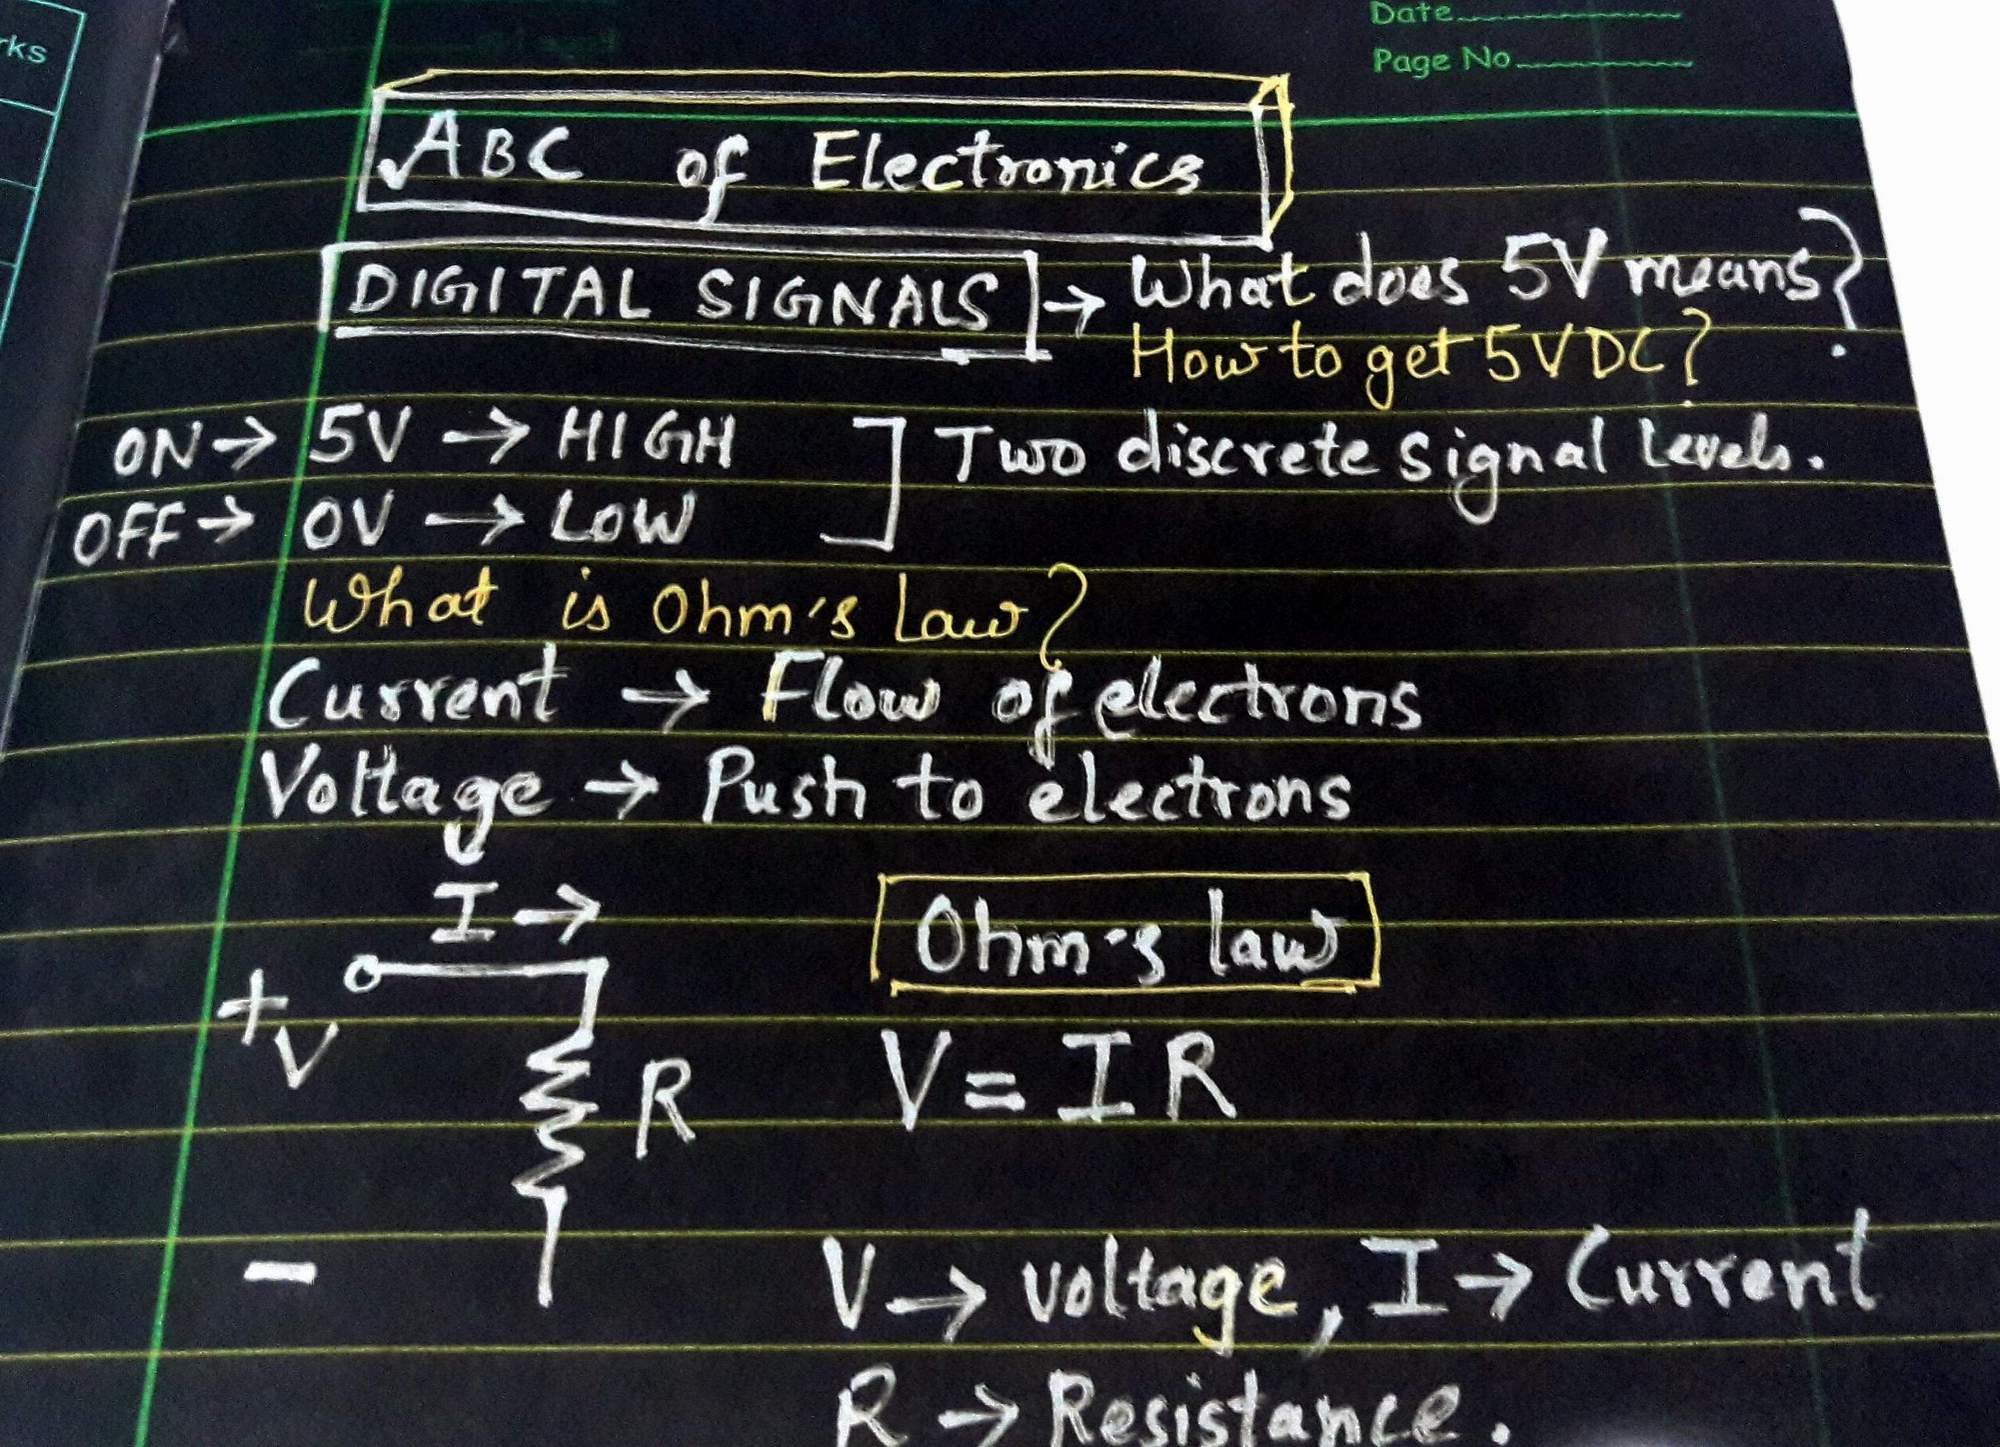 rks
Date
Page No
ABC of Electronics
DIGITAL SIGNALS → What does 5V means?
How to get 5VDC?
ON → 5V → HIGH
OFF → 0V → LOW
Two discrete signal levels.
What is Ohm's law?
Current → Flow of electrons
Voltage → Push to electrons
I →
+
V
R
-
Ohm's law
V = IR
V → voltage, I → Current
R → Resistance.